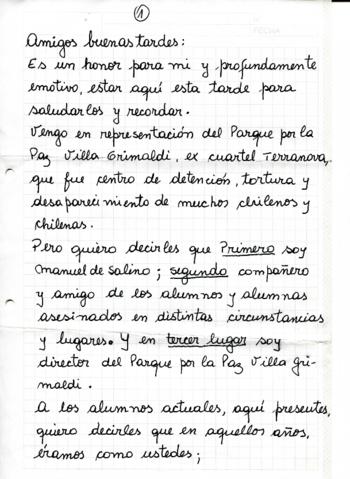 1
FECHA
Amigos buenas tardes:
Es un honor para mi y profundamente
emotivo, estar aquí esta tarde para
saludarlos y recordar.
Vengo en representación del Parque por la
Paz Villa Grimaldi, ex cuartel Terranova,
que fue centro de detención, tortura y
desaparecimiento de muchos chilenos y
chilenas.
Pero quiero decirles que Primero soy
Manuel de Salino; segundo compañero
y amigo de los alumnos y alumnas
asesinados en distintas circunstancias
y lugares. Y en tercer lugar soy
director del Parque por la Paz Villa Gri-
maldi.
A los alumnos actuales, aquí presentes,
quiero decirles que en aquellos años,
éramos como ustedes;